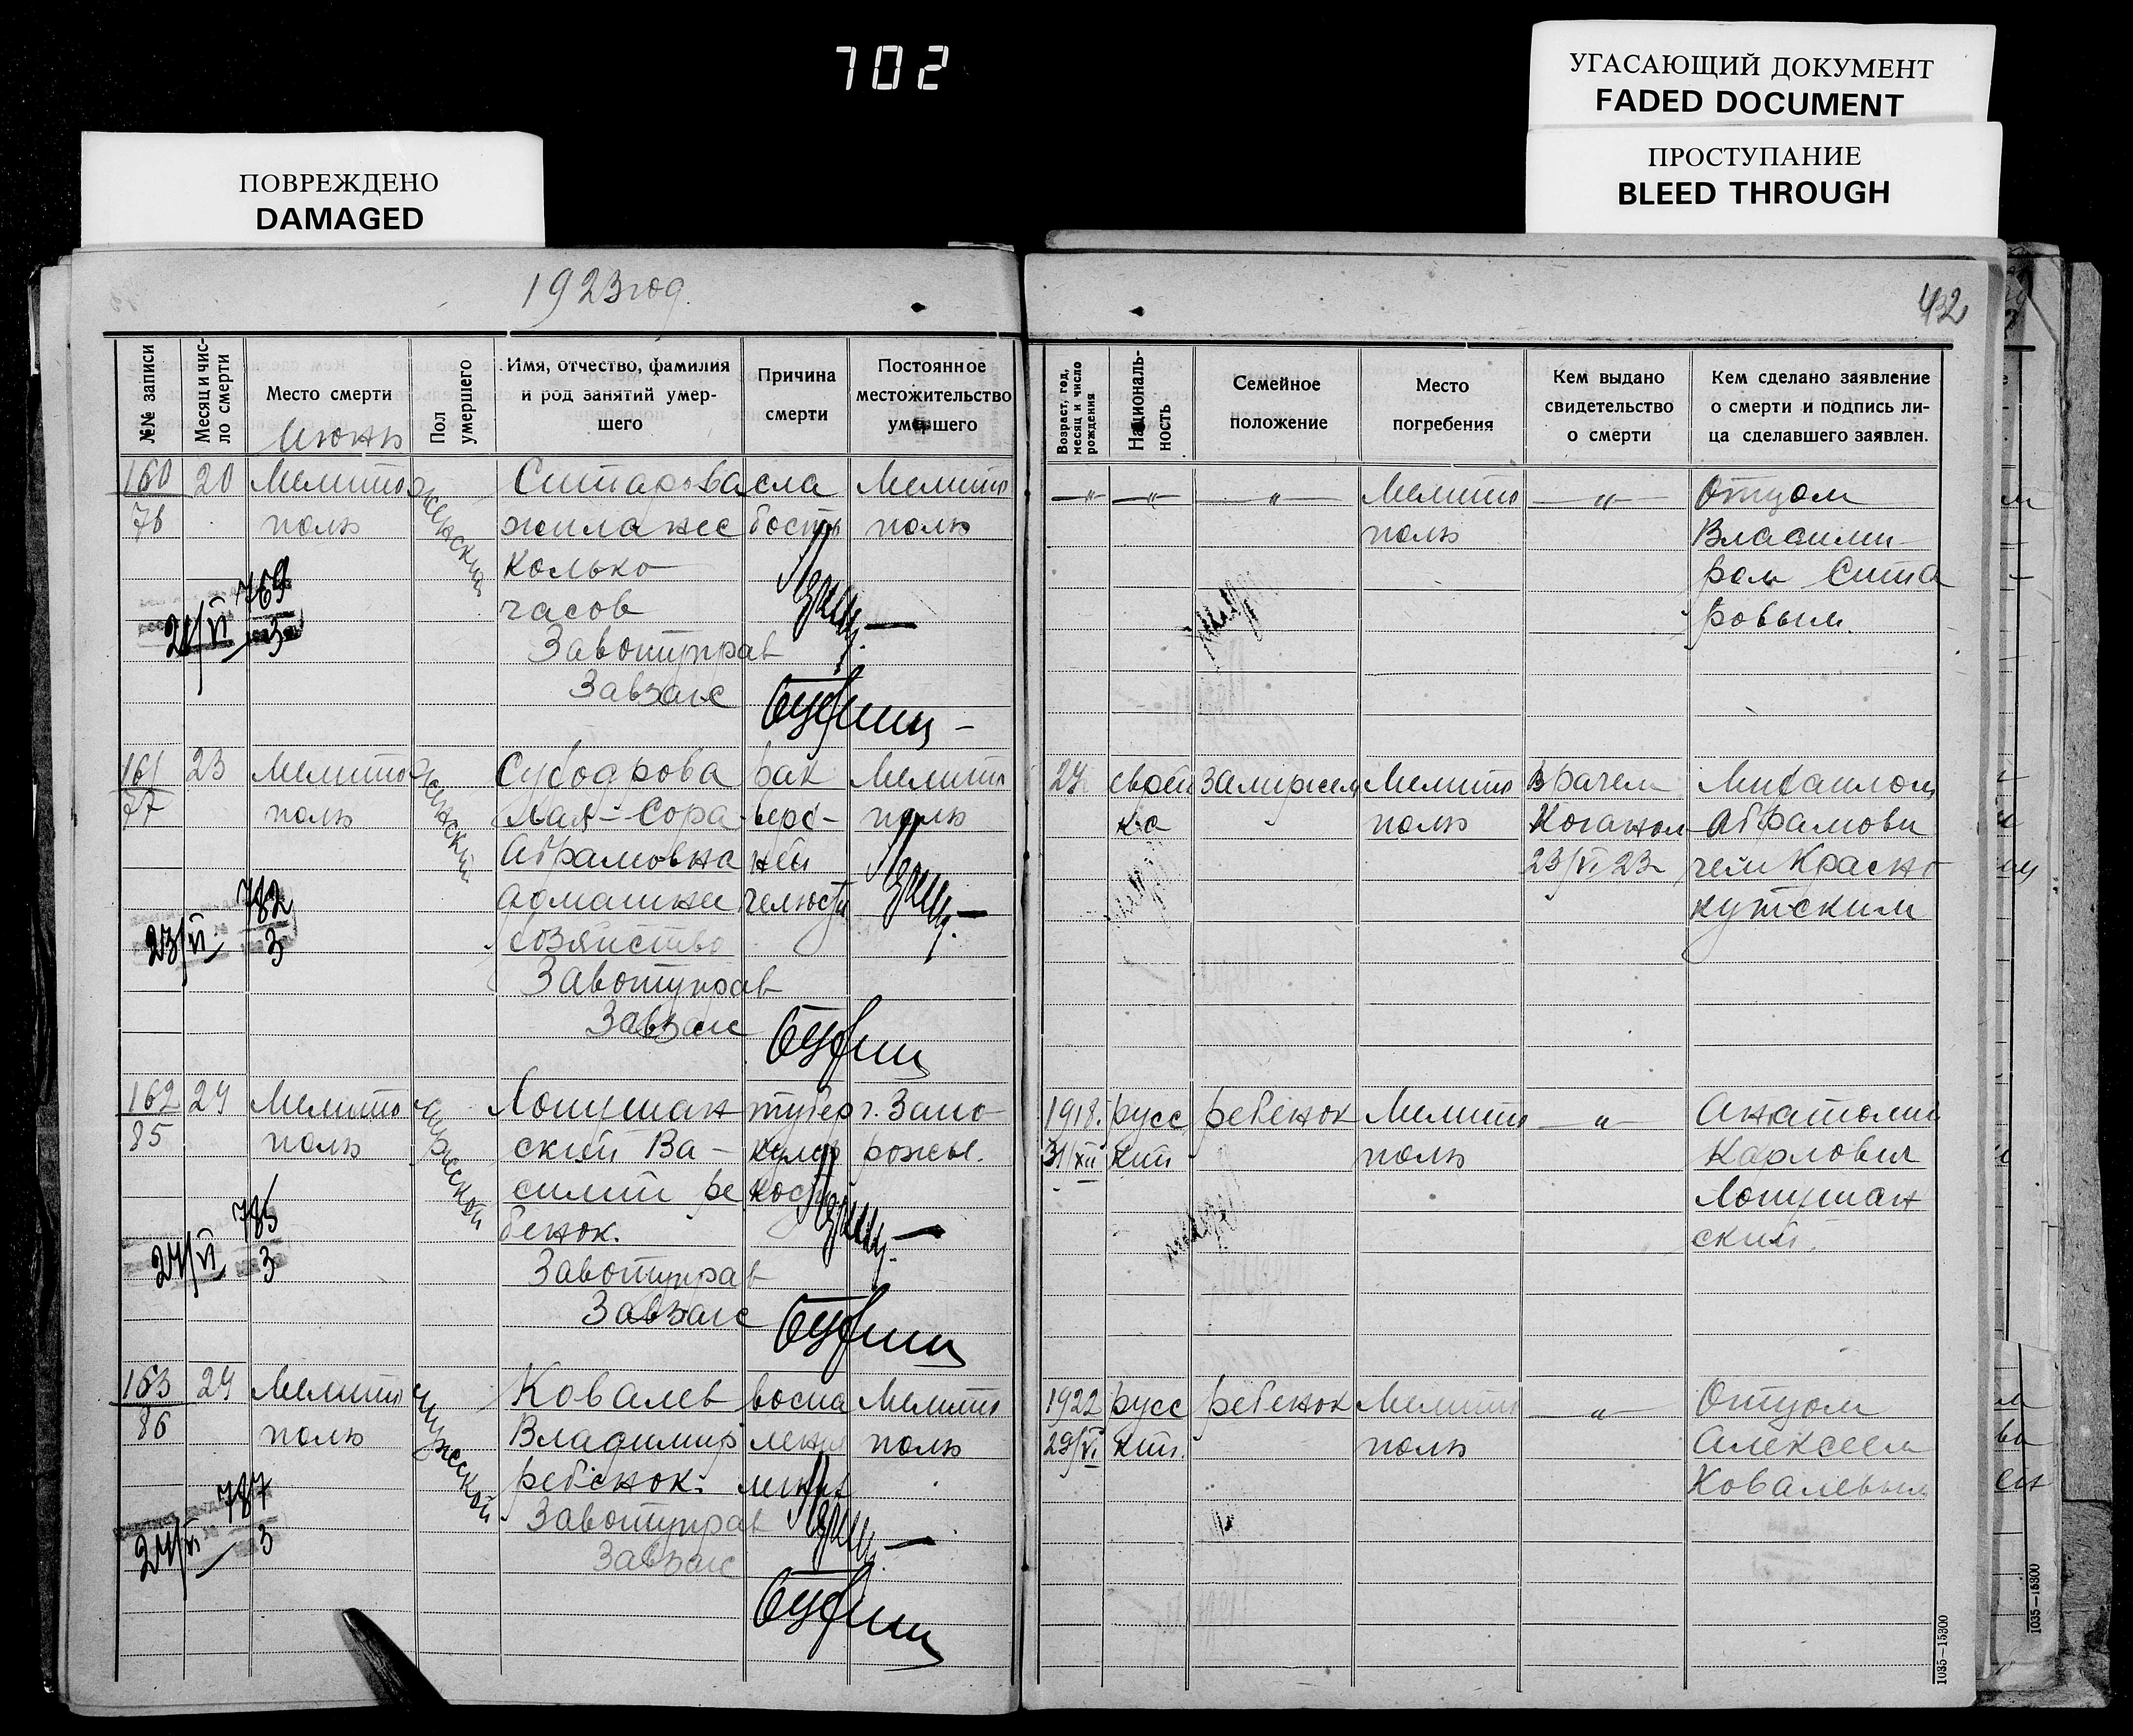 702
УГАСАЮЩИЙ ДОКУМЕНТ
FADED DOCUMENT
ПРОСТУПАНИЕ
BLEED THROUGH
ПОВРЕЖДЕНО
DAMAGED
1923 год.
432
№№ записи
Месяц и чис-
ло смерти
Место смерти
Июнь
Пол
умершего
Имя, отчество, фамилия
и род занятий умер-
шего
Причина
смерти
Постоянное
местожительство
умершего
Возраст, год,
месяц и число
рождения
Националь-
ность
Семейное
положение
Место
погребения
Кем выдано
свидетельство
о смерти
Кем сделано заявление
о смерти и подпись ли-
ца сделавшего заявлен.
160
76
20
Мелито
поль
женский
Ситарова
жила нес
колько
часов
Завотуправ
Завзагс
сла
бость
Мелито
поль
769
3
21/VI
— „ —
— „ —
— „ —
Мелито
поль
— „ —
Отцом
Владими
ром Сита
ровым.
161
77
23
Мелито
поль
женский
Сора
Абрамовна
домашнее
хозяйство
Завотуправ
Завзагс
рак
верх-
ней
челюсти
Мелито
поль
782
3
23/VI
еврей
ка
замужем
Мелито
поль
Врачем
Коганом
23/VI 23
Михаилом
Абрамови
чем Красно
кутским
162
85
24
Мелито
поль
мужской
Лопушан
ский Ва-
силий ре
бенок.
Завотуправ
Завзагс
тубер
кулез
кости
г. Запо-
рожье.
785
3
24/VI
1918.
31/XII
русс
кий
ребенок
Мелито
поль
— „ —
Анатолий
Карлович
Лопушан
ский.
163
86
24
Мелито
поль
мужской
Ковалев
Владимир
ребенок.
Завотуправ
Завзагс
воспа
ление
Мелито
поль
787
3
24/VI
1922
29/VI
русс
кий.
ребенок
Мелито
поль
— „ —
Отцом
Алексеем
Ковалевым
1035—15300
1035—15300